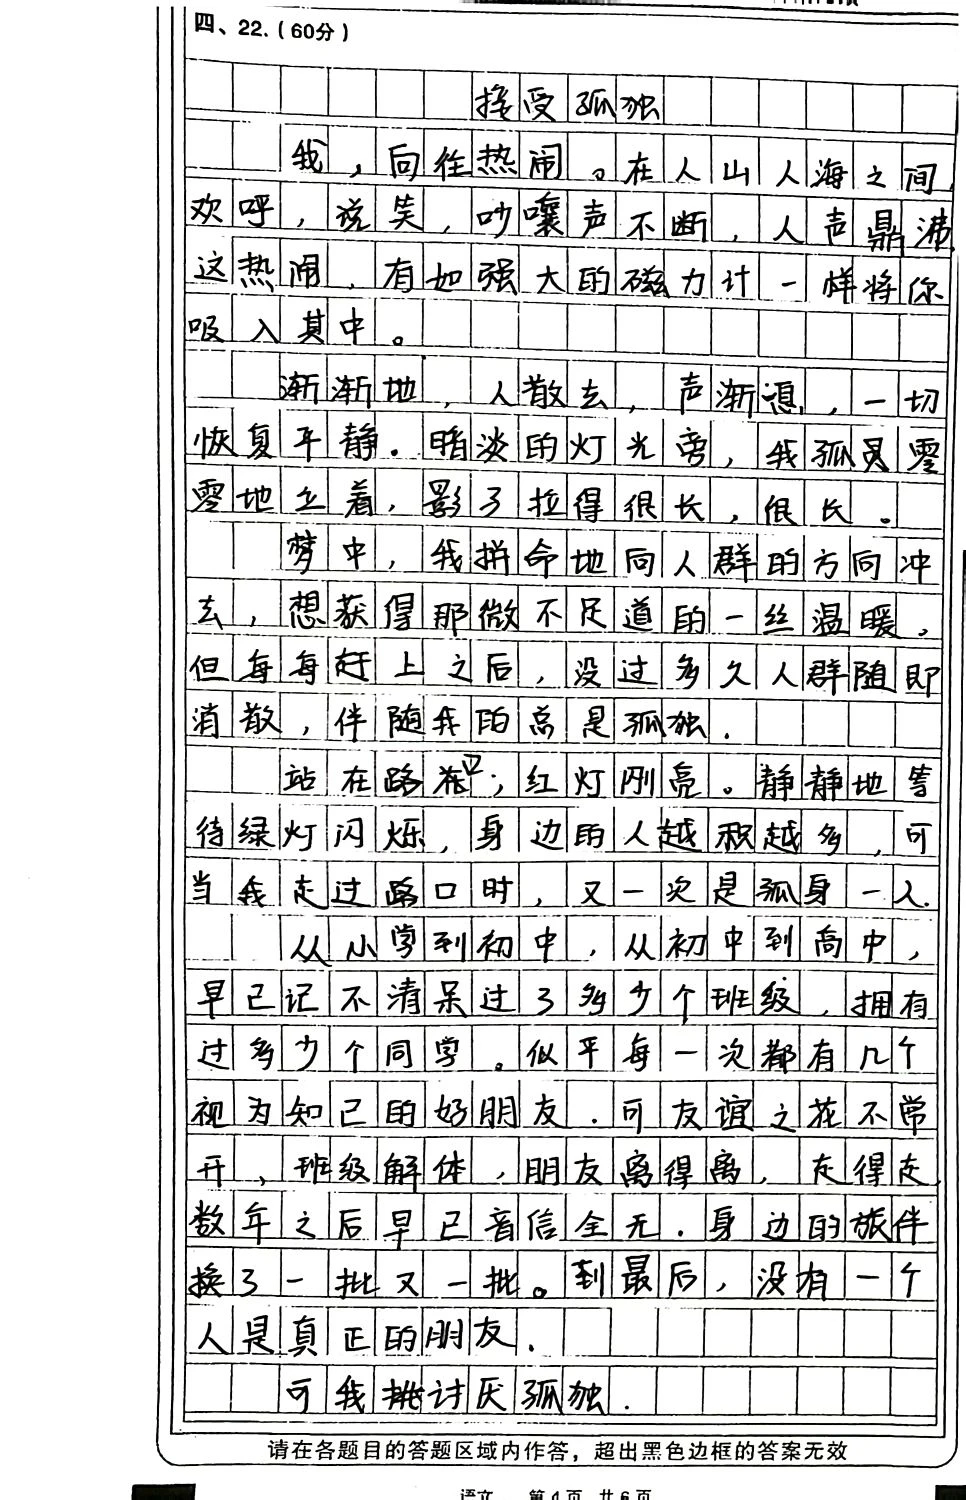 四、22.（60分）
接受孤独
我，向往热闹。在人山人海之间，
欢呼，说笑，吵嚷声不断，人声鼎沸，
这热闹，有如强大的磁力计一样将你
吸入其中。
渐渐地，人散去，声渐息，一切
恢复平静。暗淡的灯光旁，我孤灵零
零地立着，影子拉得很长，很长。
梦中，我拼命地向人群的方向冲
去，想获得那微不足道的一丝温暖，
但每每赶上之后，没过多久人群随即
消散，伴随我的总是孤独。
站在路口，红灯刚亮。静静地等
待绿灯闪烁，身边的人越积越多，可
当我走过路口时，又一次是孤身一人。
从小学到初中，从初中到高中，
早已记不清呆过了多少个班级，拥有
过多少个同学。似乎每一次都有几个
视为知己的好朋友。可友谊之花不常
开，班级解体，朋友离得离，走得走，
数年之后早已音信全无。身边的旅伴
换了一批又一批。到最后，没有一个
人是真正的朋友。
可我讨厌孤独。
请在各题目的答题区域内作答，超出黑色边框的答案无效
语文 第4页 共6页